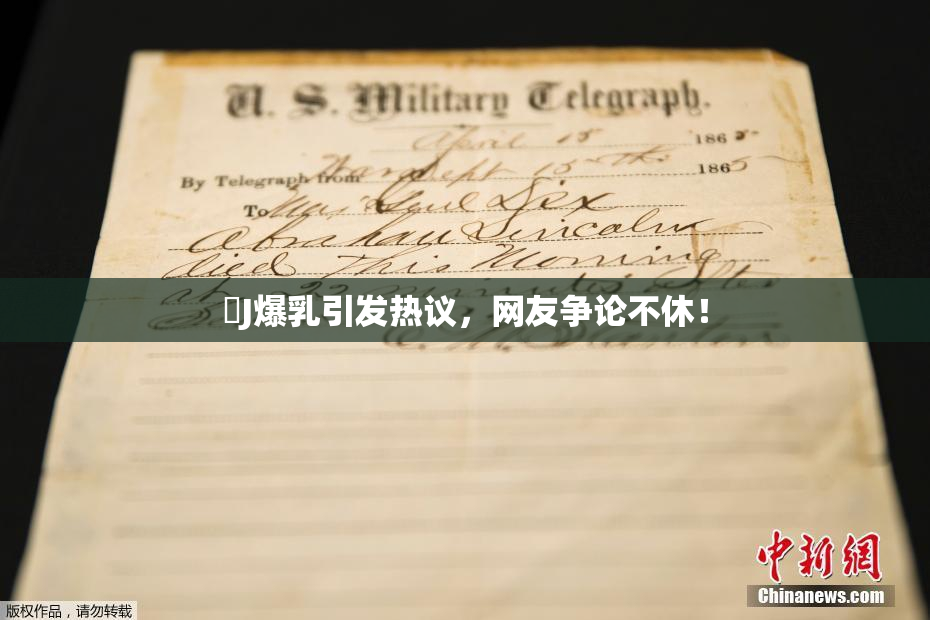 U. S. Military Telegraph.
April 15 1865
By Telegraph from War Dept 15th 1865
To Maj Genl Dix
Abraham Lincoln
died This Morning
at 22 minutes after
J爆乳引发热议，网友争论不休！
中新网
Chinanews.com
版权作品，请勿转载